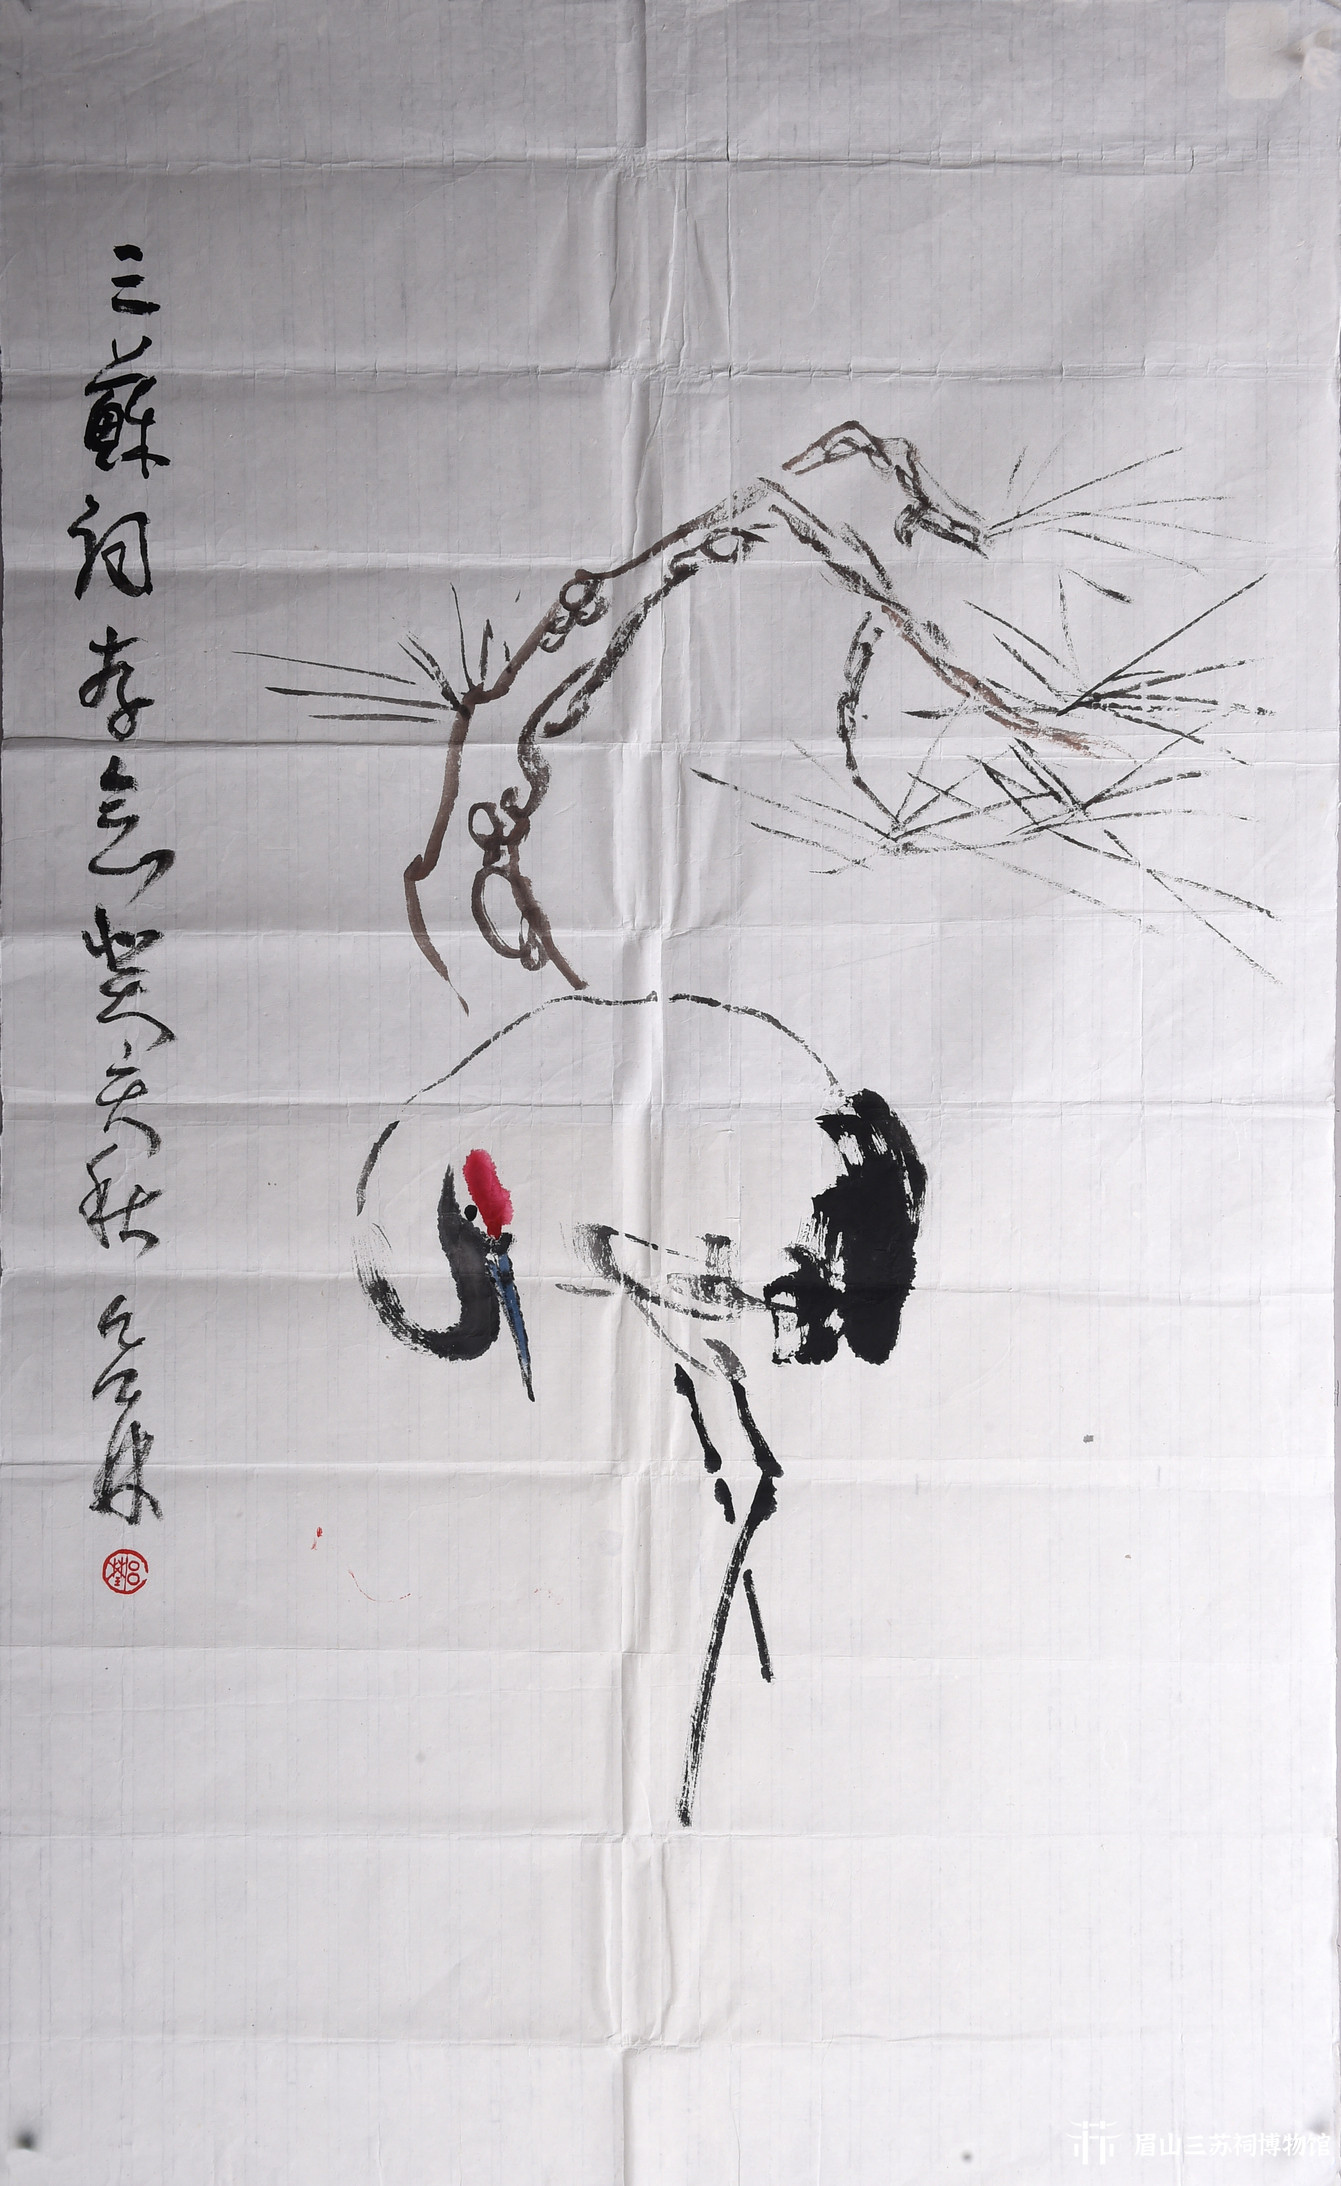 三蘇祠存念癸亥秋
眉山三苏祠博物馆